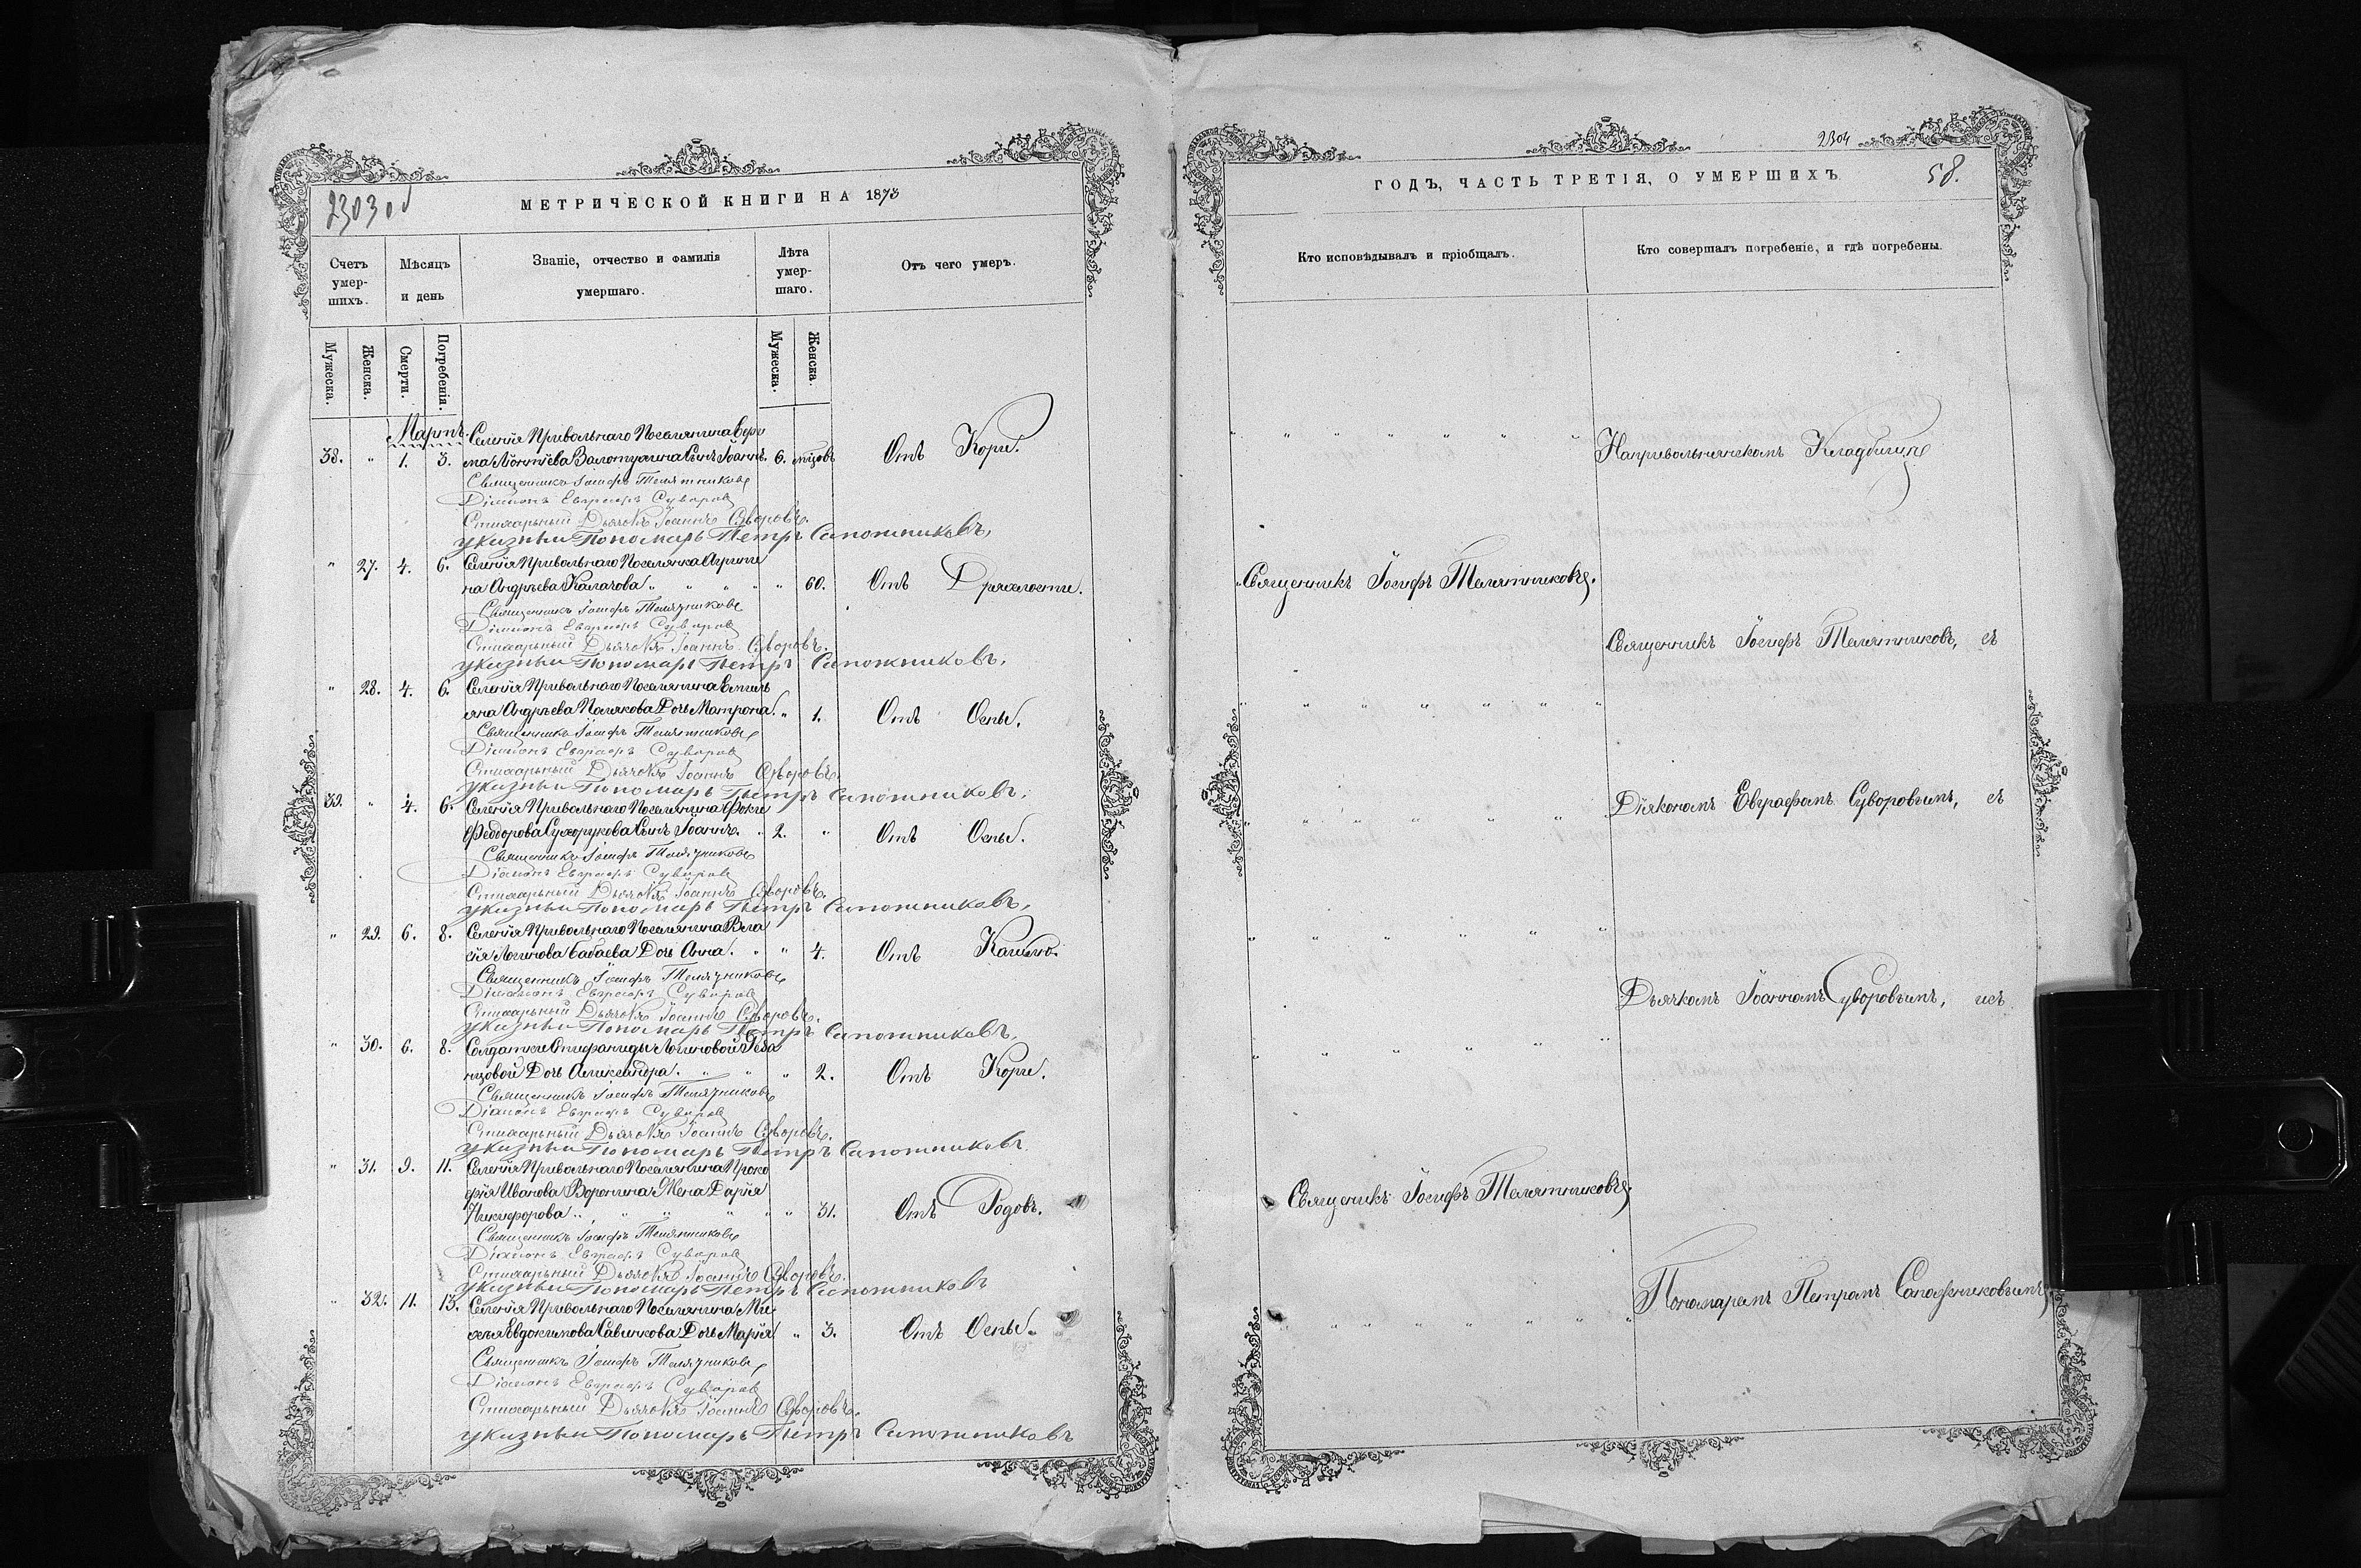 2303 об
МЕТРИЧЕСКОЙ КНИГИ НА 1873
Счетъ умер-шихъ.
Мѣсяцъ и день
Званіе, отчество и фамилія умершаго.
Лѣта умер-шаго.
Отъ чего умеръ.
Мужеска.
Женска.
Смерти.
Погребенія.
Мужеска.
Женска.
Мартъ. Селенія Привольнаго Поселянина
38. " 1. 3. Сынъ Іоаннъ. 6. мцовъ Отъ Кори.
Священникъ Іосифъ Телятниковъ
Діаконъ Евграфъ Суворов
Стихарный Дьячокъ Іоаннъ Суворовъ.
указный Пономарь Петръ Сапожниковъ,
" 27. 4. 6. Селенія Привольнаго Поселянка Агрипи
на Андреева Калачова. " " " " " 60. Отъ Дряхлости.
Священникъ Іосифъ Телятниковъ
Діаконъ Евграфъ Суворов
Стихарный Дьячокъ Іоаннъ Суворовъ.
указный Пономарь Петръ Сапожниковъ.
" 28. 4. 6. Селенія Привольнаго Поселянина Емель
яна Андреева Полякова Дочь Матрона. " 1. Отъ Оспы.
Священникъ Іосифъ Телятниковъ
Діаконъ Евграфъ Суворов
Стихарный Дьячокъ Іоаннъ Суворовъ.
указный Пономарь Петръ Сапожниковъ.
39. " 4. 6. Селенія Привольнаго Поселянина Фоки
Феодорова Сухорукова Сынъ Іоаннъ. " 2. " Отъ Оспы.
Священникъ Іосифъ Телятниковъ
Діаконъ Евграфъ Суворов
Стихарный Дьячокъ Іоаннъ Суворовъ.
указный Пономарь Петръ Сапожниковъ,
" 29. 6. 8. Селенія Привольнаго Поселянина
Логинова Бабаева Дочь Анна. " " 4. Отъ Кашлю.
Священникъ Іосифъ Телятниковъ
Діаконъ Евграфъ Суворов
Стихарный Дьячокъ Іоаннъ Суворовъ.
указный Пономарь Петръ Сапожниковъ,
" 30. 6. 8. Солдатки Епифаниды Логиновой
Дочь Александра. " " " 2. Отъ Кори.
Священникъ Іосифъ Телятниковъ
Діаконъ Евграфъ Суворов
Стихарный Дьячокъ Іоаннъ Суворовъ.
указный Пономарь Петръ Сапожниковъ
" 31. 9. 11. Селенія Привольнаго Поселянина Проко
фія Иванова Воронина Жена Дарія
Никифорова " " " " " " 31. Отъ Родовъ.
Священникъ Іосифъ Телятниковъ
Діаконъ Евграфъ Суворов
Стихарный Дьячокъ Іоаннъ Суворовъ.
указный Пономарь Петръ Сапожниковъ
" 32. 11. 13. Селенія Привольнаго Поселянина Ми
хея Евдокимова Савинкова Дочь Марія " 3. Отъ Оспы.
Священникъ Іосифъ Телятниковъ
Діаконъ Евграфъ Суворов
Стихарный Дьячокъ Іоаннъ Суворовъ.
указный Пономарь Петръ Сапожниковъ
2304
ГОДЪ, ЧАСТЬ ТРЕТІЯ, О УМЕРШИХЪ.
58.
Кто исповѣдывалъ и пріобщалъ.
Кто совершалъ погребеніе, и гдѣ погребены.
" " " " " " " На привольнянскомъ Кладбищѣ
Священникъ Іосифъ Телятниковъ.
Священникъ Іосифъ Телятниковъ, съ
" " " " " " "
Діякономъ Евграфомъ Суворовымъ, съ
" " " " " "
" " " " " "
Дьячкомъ Іоанномъ Суворовымъ, исъ
" " " " " "
Священикъ Іосифъ Телятниковъ.
Пономаремъ Петромъ Сапожниковымъ.
" " " " " " "